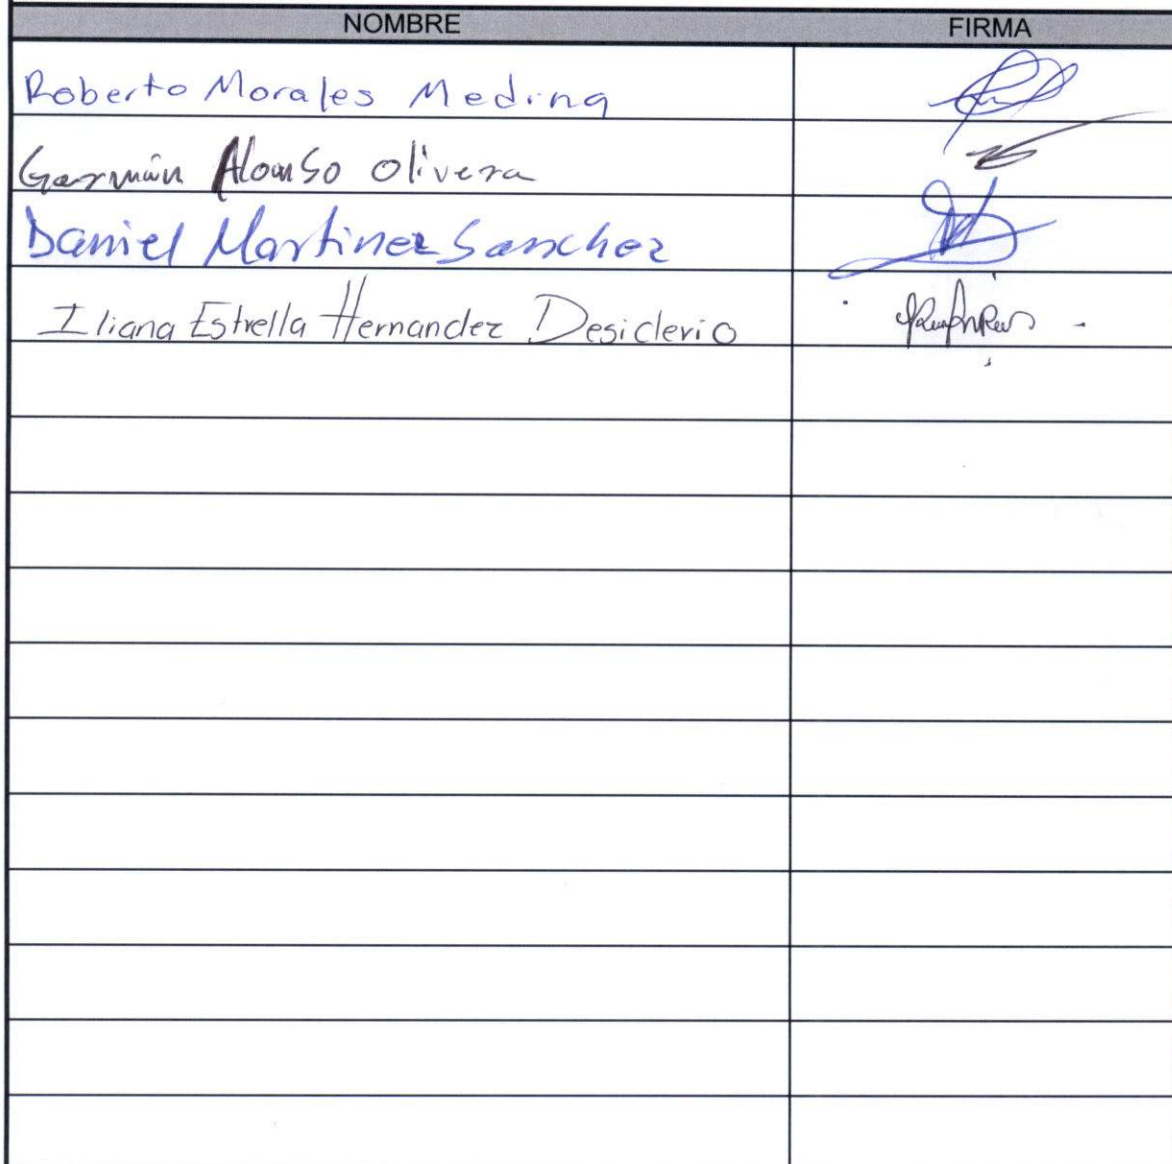 NOMBRE FIRMA
Roberto Morales Medina
Germán Alonso Olivera
Daniel Martinez Sanchez
Iliana Estrella Hernandez Desiderio